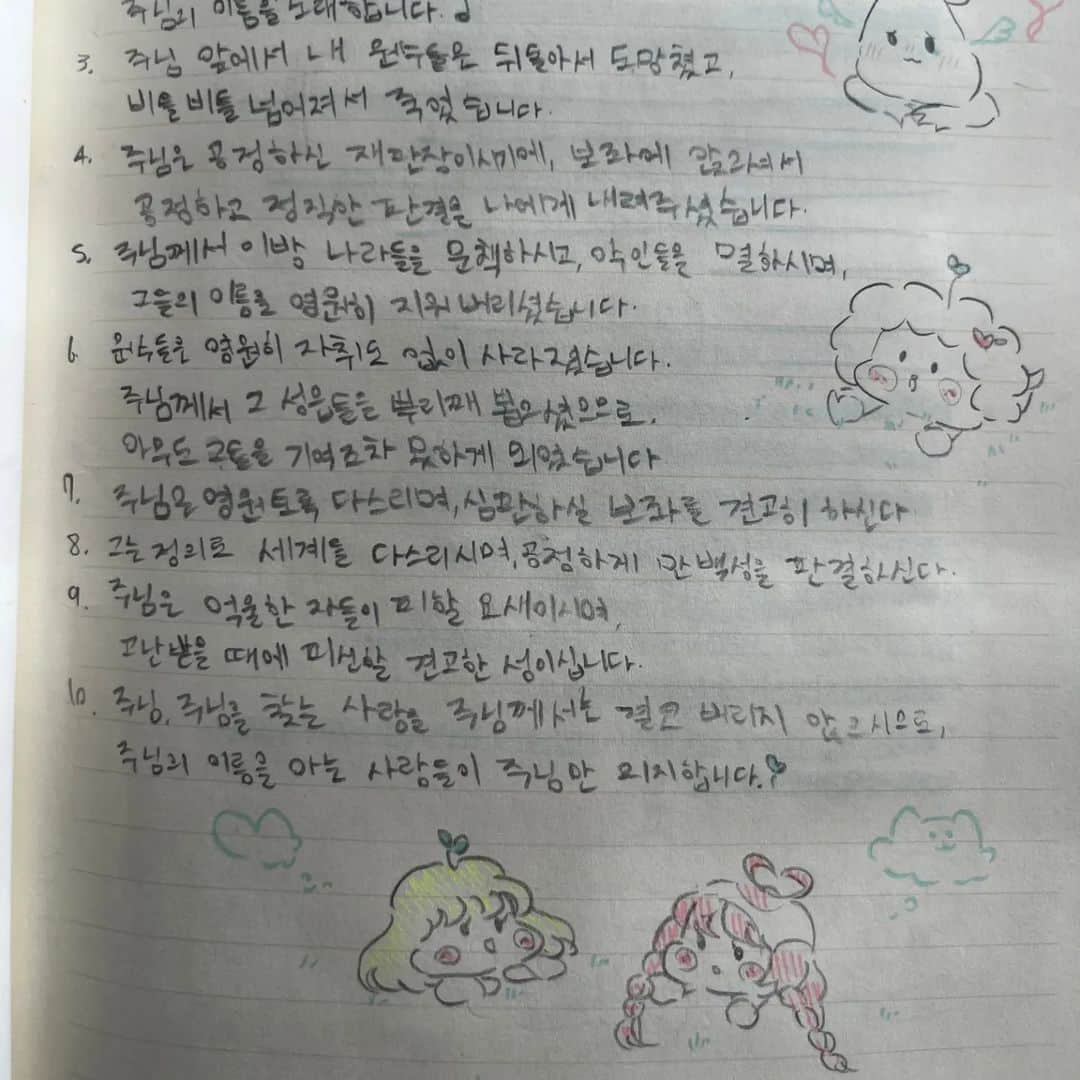 주님의 이름을 노래합니다.
3. 주님 앞에서 내 원수들은 뒤돌아서 도망쳤고,
비틀비틀 넘어져서 죽었습니다.
4. 주님은 공정하신 재판장이시기에, 보좌에 앉으셔서
공정하고 정직한 판결을 나에게 내려주셨습니다.
5. 주님께서 이방 나라들을 문책하시고, 악인들을 멸하시며,
그들의 이름을 영원히 지워버리셨습니다.
6. 원수들은 영원히 자취도 없이 사라졌습니다.
주님께서 그 성읍들을 뿌리째 뽑으셨으므로,
아무도 그들을 기억조차 못하게 되었습니다
7. 주님은 영원토록 다스리며, 심판하실 보좌를 견고히 하신다
8. 그는 정의로 세계를 다스리시며, 공정하게 만백성을 판결하신다.
9. 주님은 억울한 자들이 피할 요새이시며,
고난받을 때에 피신할 견고한 성이십니다.
10. 주님, 주님을 찾는 사람을 주님께서는 결코 버리지 않으시므로,
주님의 이름을 아는 사람들이 주님만 의지합니다.